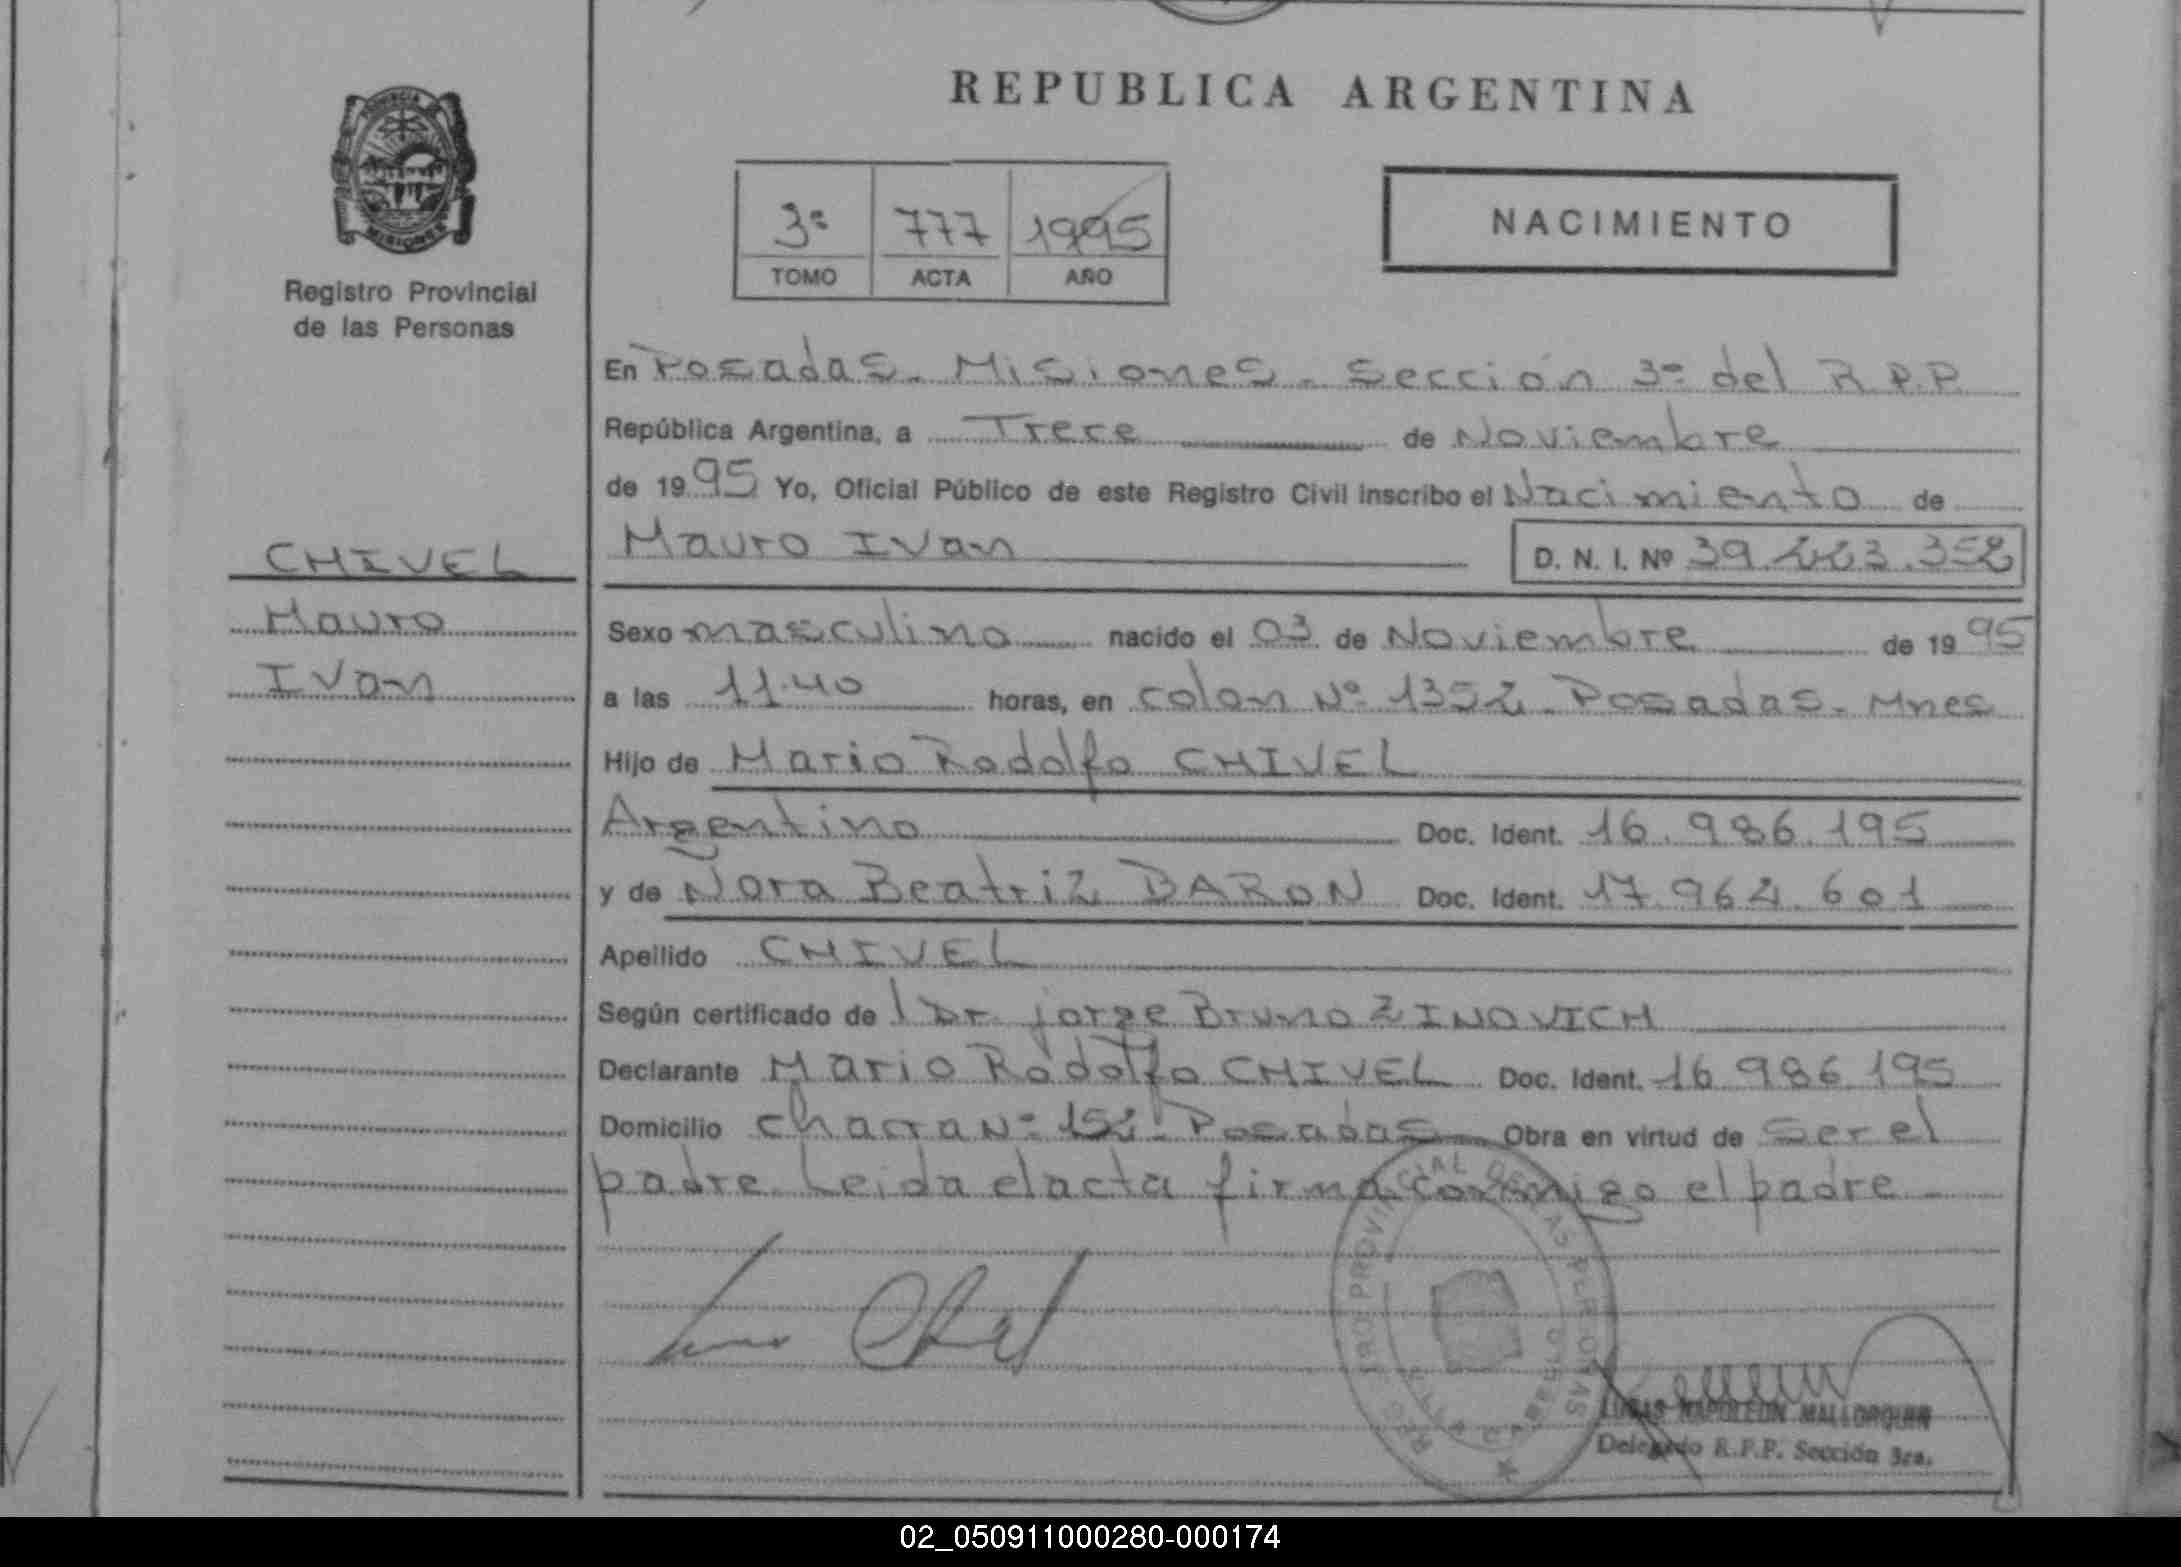 REPUBLICA ARGENTINA
PROVINCIA DE
MISIONES
Registro Provincial
de las Personas
3ª 777 1995
TOMO ACTA AÑO
NACIMIENTO
En Posadas - Misiones - Sección 3ª del R.P.P.
República Argentina, a Trece de Noviembre
de 1995 Yo, Oficial Público de este Registro Civil inscribo el Nacimiento de
CHIVEL
Mauro
Ivan
Mauro Ivan D. N. I. Nº 39.223.352
Sexo masculino nacido el 03 de Noviembre de 1995
a las 11.40 horas, en colon Nº 1352 - Posadas - Mnes
Hijo de Mario Rodolfo CHIVEL
Argentino Doc. Ident. 16.986.195
y de Ñora Beatriz BARON Doc. Ident. 17.964.601
Apellido CHIVEL
Según certificado de l Dr. jorge Bruno ZINOVICH
Declarante Mario Rodolfo CHIVEL Doc. Ident. 16.986.195
Domicilio chacra Nº 152 - Posadas - Obra en virtud de ser el
padre. Leida el acta firma conmigo el padre
REGISTRO PROVINCIAL DE LAS PERSONAS
LUCAS NAPOLEON MALLORQUIN
Delegado R.P.P. Sección 3ra.
02_050911000280-000174